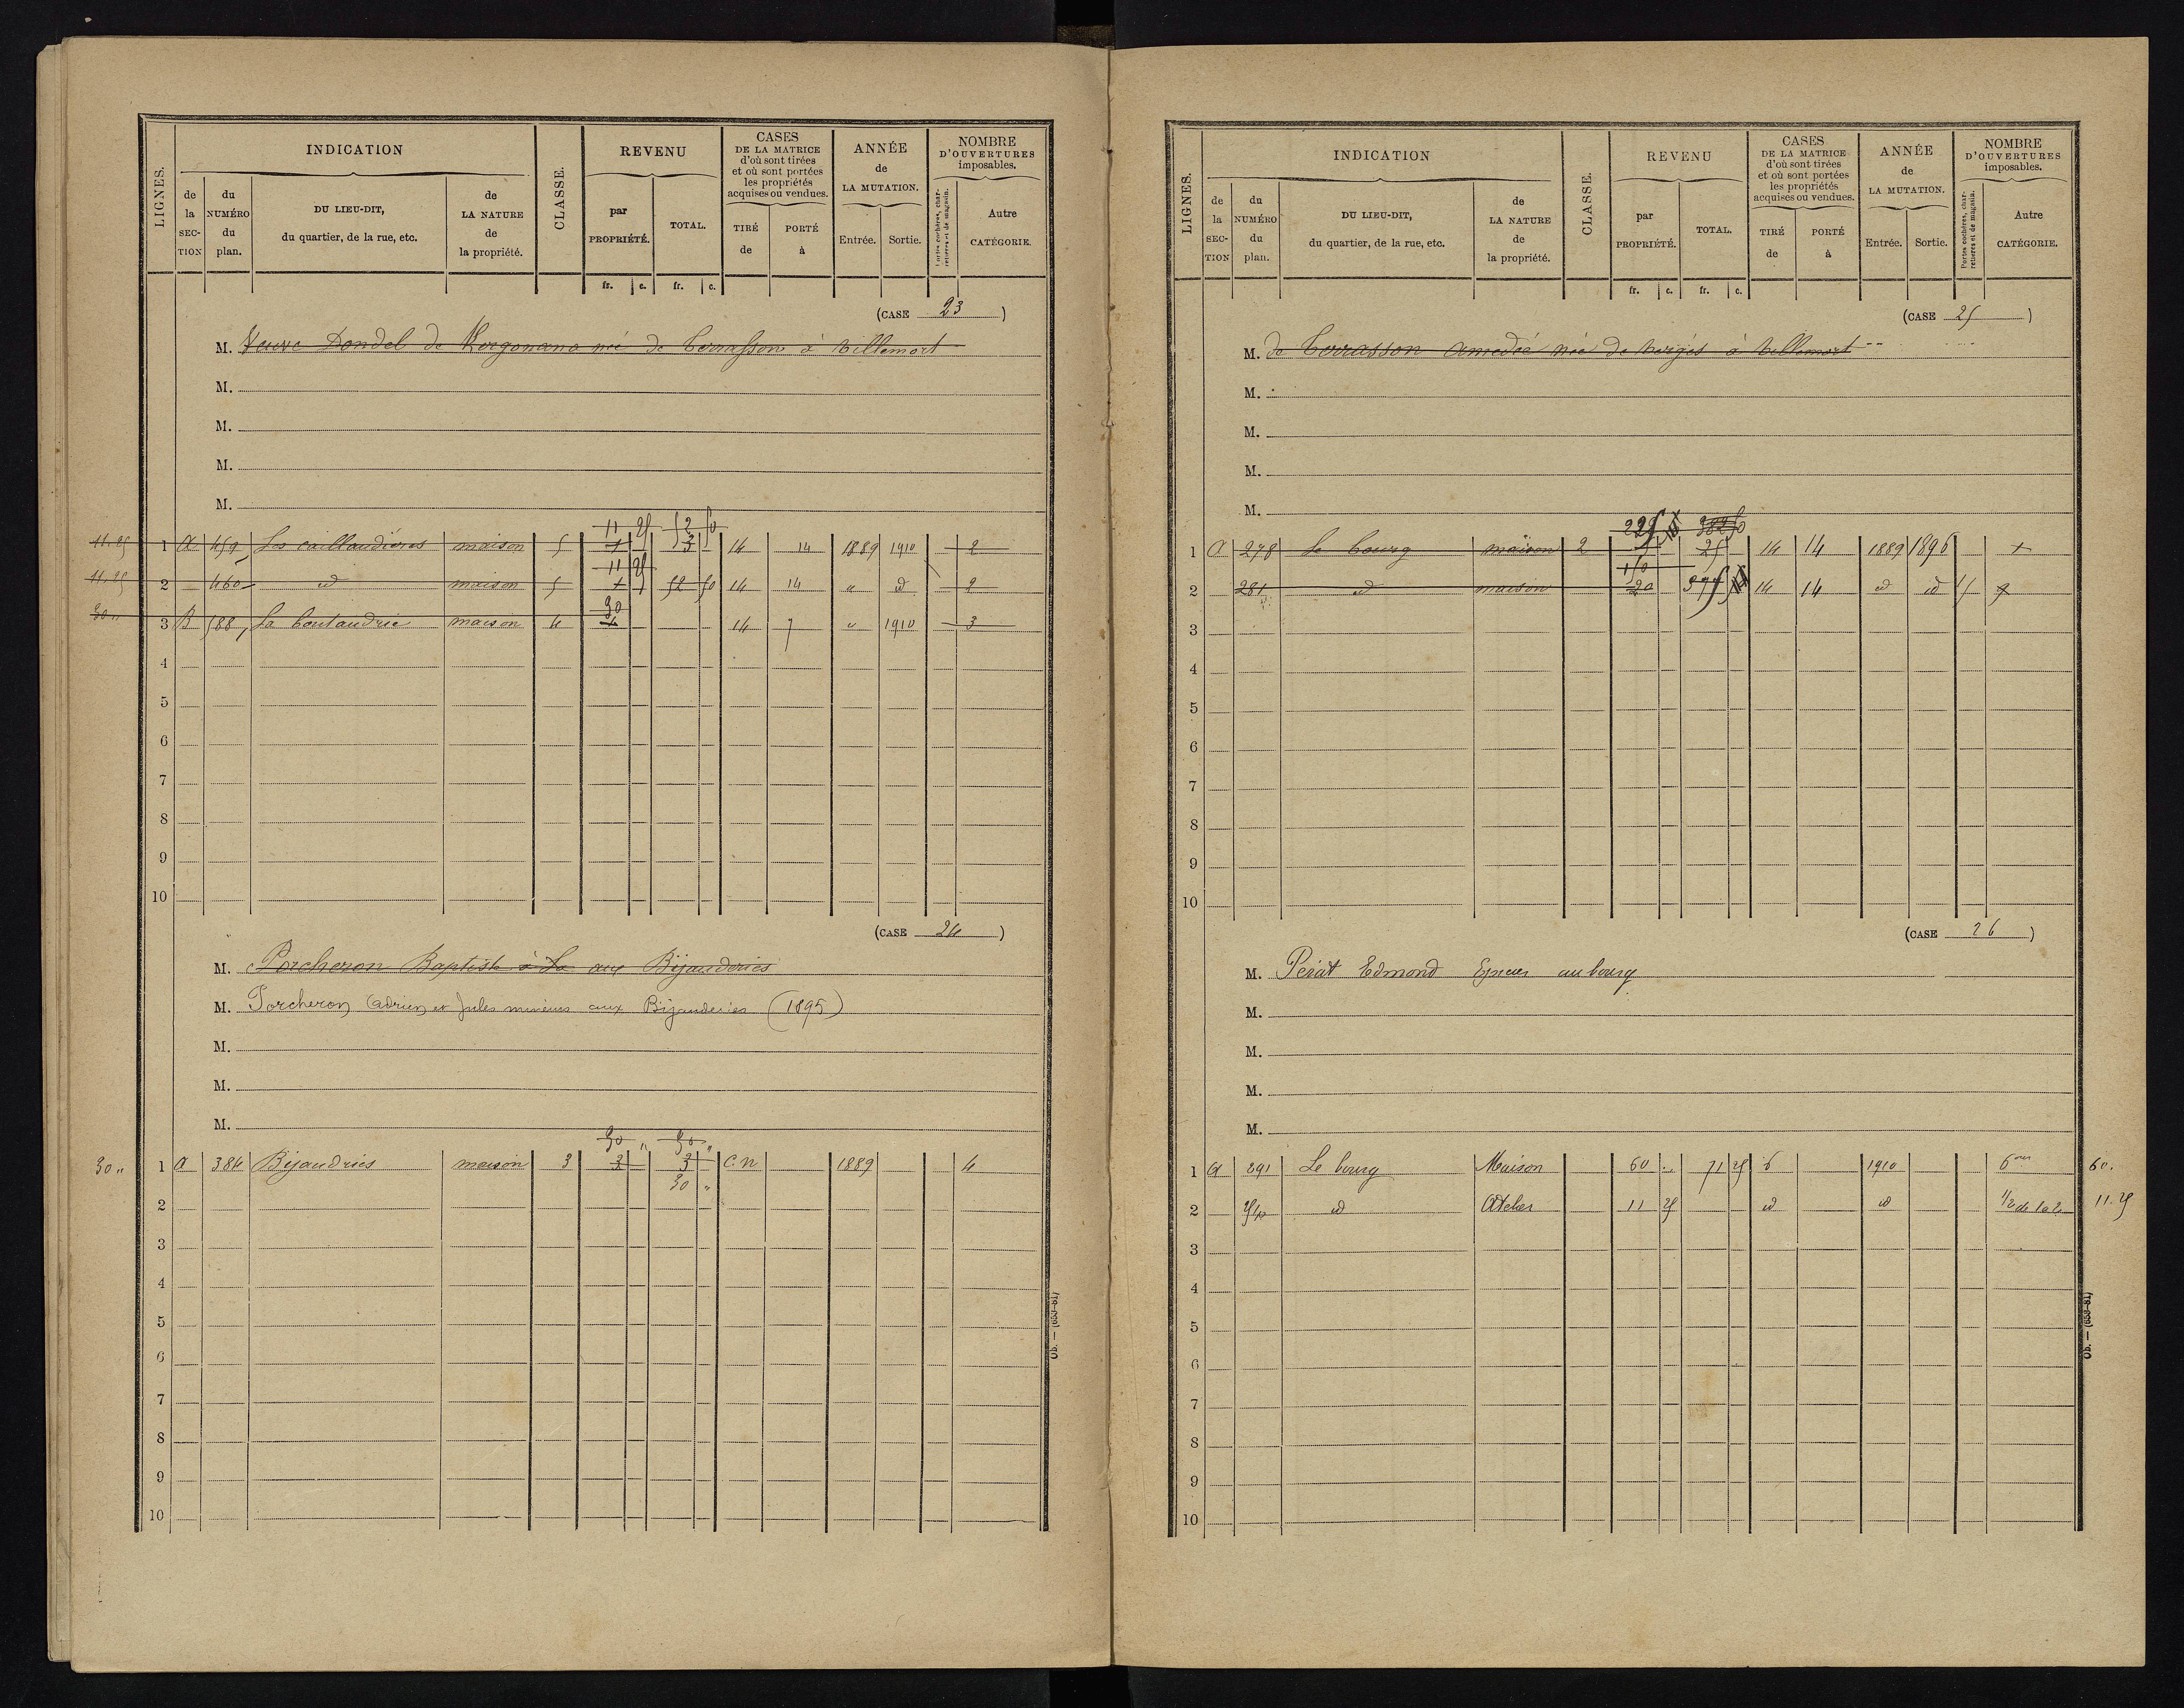 LIGNES.
INDICATION
de la SECTION
du NUMÉRO du plan.
DU LIEU-DIT, du quartier, de la rue, etc.
de LA NATURE de la propriété.
CLASSE.
REVENU
par PROPRIÉTÉ.
TOTAL.
fr. c. fr. c.
CASES DE LA MATRICE d'où sont tirées et où sont portées les propriétés acquises ou vendues.
TIRÉ de
PORTÉ à
ANNÉE de LA MUTATION.
Entrée. Sortie.
NOMBRE D'OUVERTURES imposables.
Portes cochères, charretières et de magasin.
Autre CATÉGORIE.
(CASE 23)
M. Veuve Dondel de née de Terrasson à villemort
M.
M.
M.
M.
11 25 52 50
11.25 1 A 459 Les caillaudières maison 5 3 14 14 1889 1910 2
11 25
11.25 2 460 id maison 5 52 50 14 14 " id 2
30
30 " 3 B 588 La boutaudrie maison 4 14 7 " 1910 3
4
5
6
7
8
9
10
(CASE 24)
M. Porcheron Baptiste à La aux Bijauderies
M. Porcheron Adrien et Jules mineurs aux Bijauderies (1895)
M.
M.
M.
30 " 30 "
30 " 1 A 384 Bijaudries maison 3 3 3 C.N 1889 4
30 "
2
3
4
5
6
7
8
9
10
Ob. — (653-81)
LIGNES.
INDICATION
de la SECTION
du NUMÉRO du plan.
DU LIEU-DIT, du quartier, de la rue, etc.
de LA NATURE de la propriété.
CLASSE.
REVENU
par PROPRIÉTÉ.
TOTAL.
fr. c. fr. c.
CASES DE LA MATRICE d'où sont tirées et où sont portées les propriétés acquises ou vendues.
TIRÉ de
PORTÉ à
ANNÉE de LA MUTATION.
Entrée. Sortie.
NOMBRE D'OUVERTURES imposables.
Portes cochères, charretières et de magasin.
Autre CATÉGORIE.
(CASE 25)
M. de Terrasson Amedée née de à villemort
M.
M.
M.
M.
225 382 50
1 A 278 Le bourg maison 2 25 14 14 1889 1896
150
2 281 id maison 20 375 14 14 id id
3
4
5
6
7
8
9
10
(CASE 26)
M. Périt Edmond Epicier au bourg
M.
M.
M.
M.
1 A 291 Le bourg Maison 60 71 25 6 1910 6 60.
2 id Atelier 11 25 id id 1/2 de la 2 11.25
3
4
5
6
7
8
9
10
Ob. — (653-81)